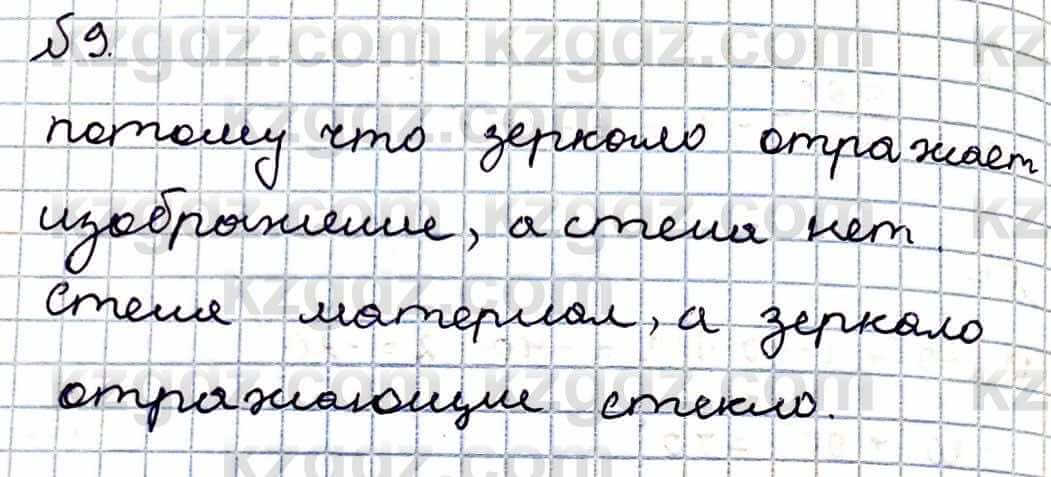 №9.
потому что зеркало отражает
изображение, а стена нет.
стена материал, а зеркало
отражающие стекло.